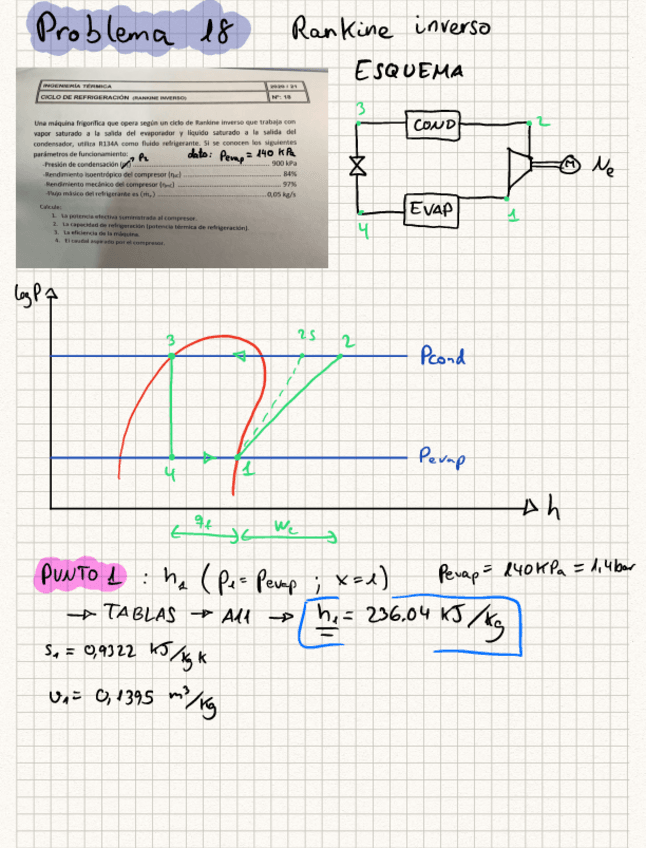 Problema 18 Rankine inverso
INGENIERÍA TÉRMICA 2020 / 21
CICLO DE REFRIGERACIÓN (RANKINE INVERSO) Nº: 18
Una máquina frigorífica que opera según un ciclo de Rankine inverso que trabaja con
vapor saturado a la salida del evaporador y líquido saturado a la salida del
condensador, utiliza R134A como fluido refrigerante. Si se conocen los siguientes
parámetros de funcionamiento: dato: Pevap = 140 KPa
-Presión de condensación P2 900 kPa
-Rendimiento isoentrópico del compresor 84%
-Rendimiento mecánico del compresor 97%
-Flujo másico del refrigerante es 0,05 kg/s
Calcule:
1. La potencia efectiva suministrada al compresor.
2. La capacidad de refrigeración (potencia térmica de refrigeración).
3. La eficiencia de la máquina.
4. El caudal aspirado por el compresor.
ESQUEMA
3
COND
2
M
Ne
EVAP
1
4
logP
3
2s
2
Pcond
4
1
Pevap
h
Wc
PUNTO 1 : h1 (P1 = Pevap ; x=1) Pevap = 140KPa = 1,4bar
→ TABLAS → A11 → h1 = 236.04 KJ/kg
s1 = 0,9322 KJ/kg K
v1 = 0,1395 m³/kg